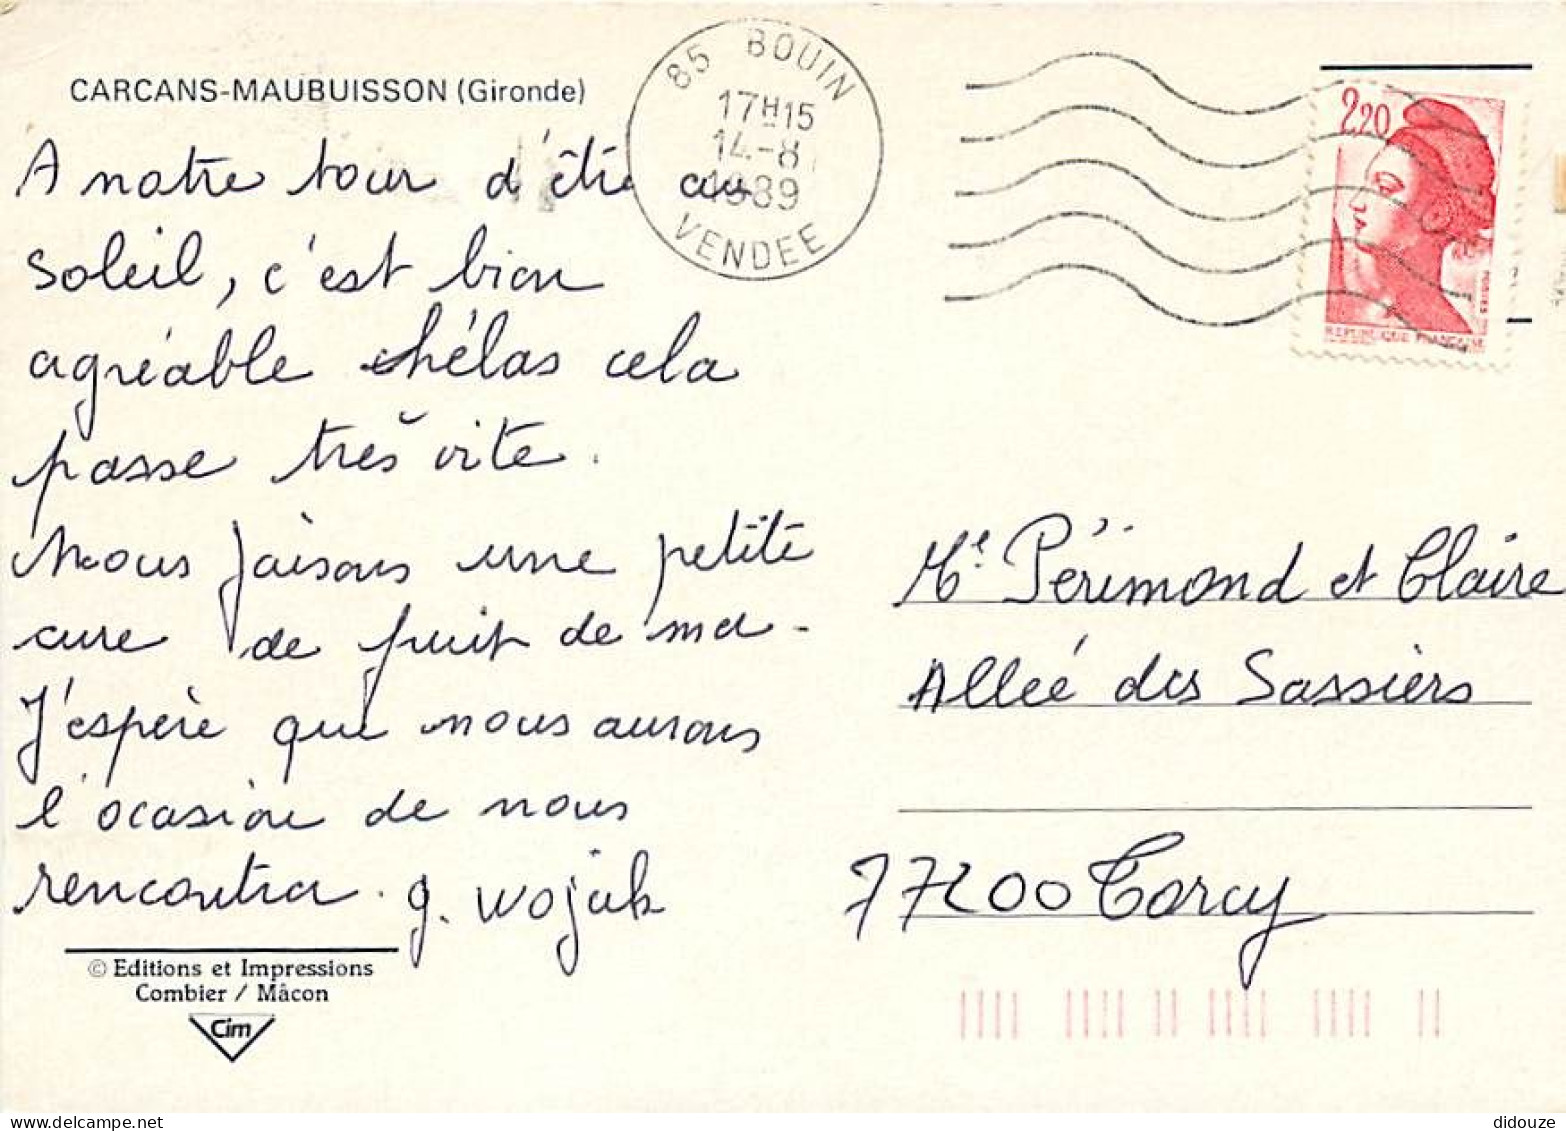 CARCANS-MAUBUISSON (Gironde)
A notre tour d'être au
soleil, c'est bien
agréable hélas cela
passe très vite.
Nous faisons une petite
cure de fruit de mer.
J'espère que nous aurons
l'ocasion de nous
rencontrer. g. wojak
© Editions et Impressions
Combier / Mâcon
Cim
85 BOUIN
17H15
14-8
1989
VENDEE
2,20
POSTES
REPUBLIQUE FRANCAISE
Me Périmond et Claire
Alleé des Sassiers
77200 Torcy
didouze